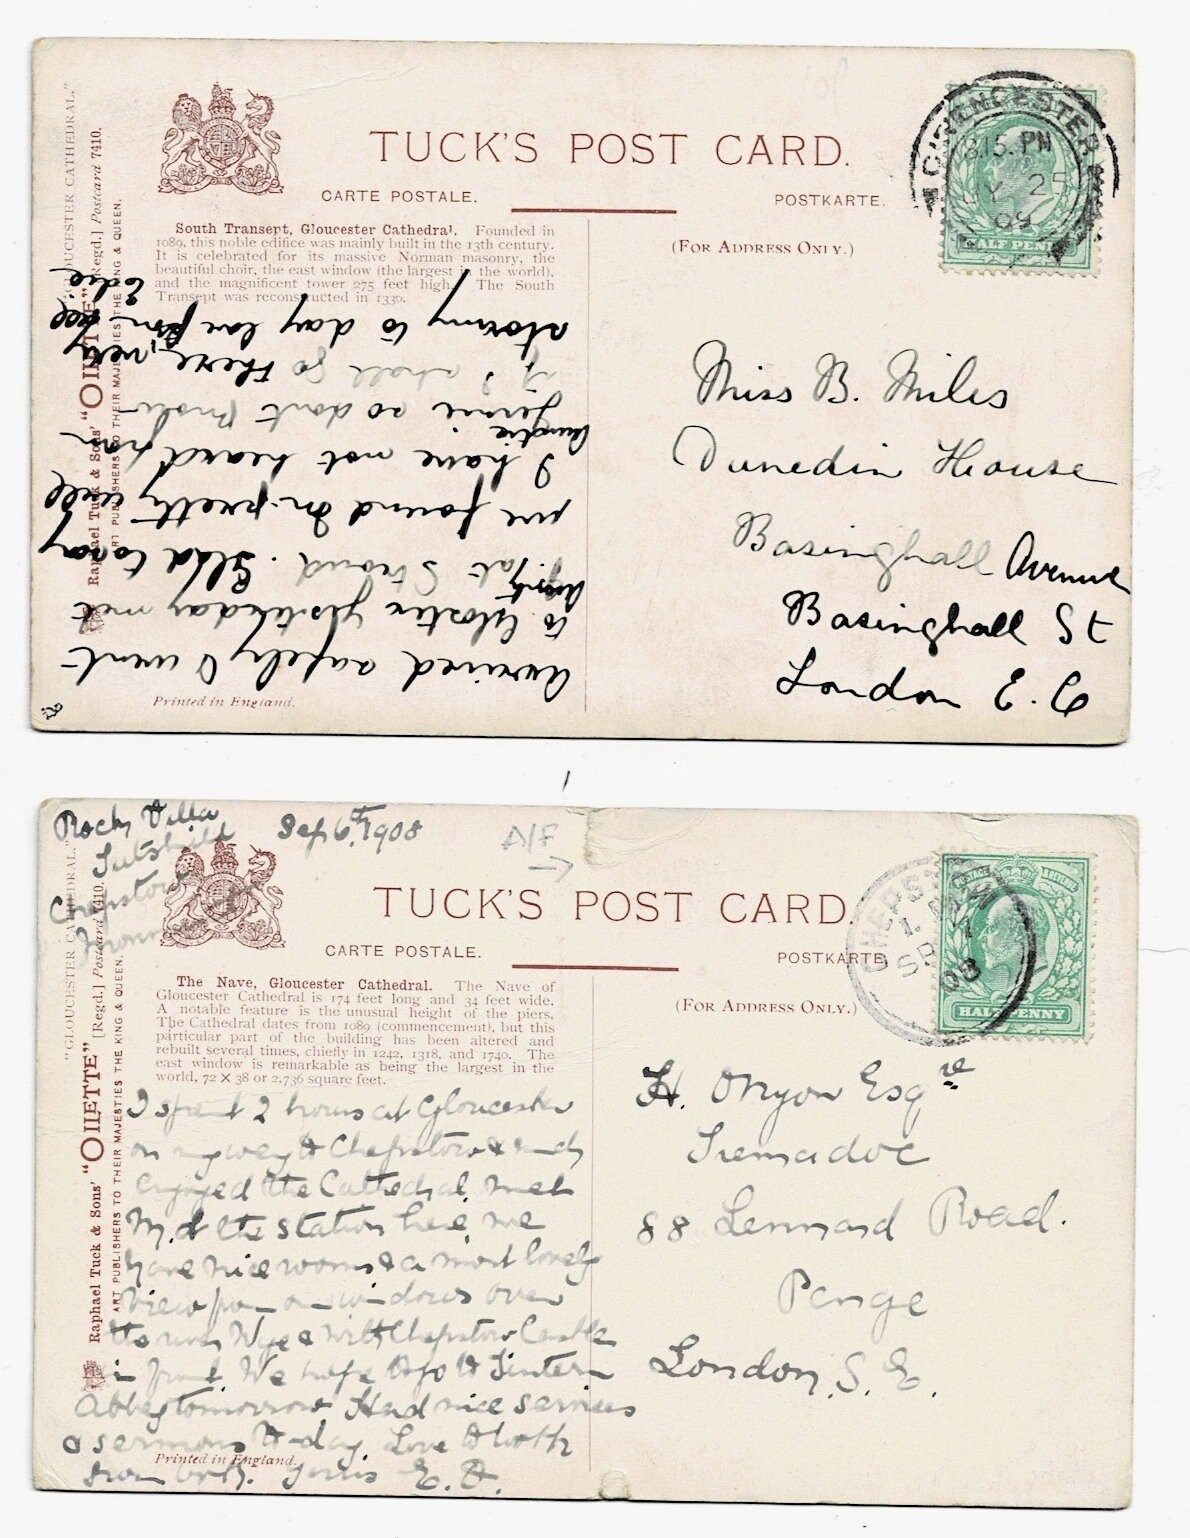 "GLOUCESTER CATHEDRAL."
Raphael Tuck & Sons' "OILETTE" [Regd.] Postcard 7410.
ART PUBLISHERS TO THEIR MAJESTIES THE KING & QUEEN.
TUCK'S POST CARD.
CARTE POSTALE.
POSTKARTE.
(FOR ADDRESS ONLY.)
South Transept, Gloucester Cathedral. Founded in
1089, this noble edifice was mainly built in the 13th century.
It is celebrated for its massive Norman masonry, the
beautiful choir, the east window (the largest in the world),
and the magnificent tower 275 feet high. The South
Transept was reconstructed in 1330.
CIRENCESTER
8.15. PM
JY 25
09
HALF PENNY
Arrived safely I went
to Gloster yesterday met
Aunty at Stroud.
we found pretty well
I have not heard from
Auntie
Jennie so dont
if I shall go there, very
stormy to day love from all
Edie
Miss B. Miles
Dunedin House
Basinghall Avenue
Basinghall St
London E.C
Printed in England.
Rocky Villa
Tutshill
Chepstow
Sep 6th 1908
A/F
"GLOUCESTER CATHEDRAL."
Raphael Tuck & Sons' "OILETTE" [Regd.] Postcard 7410.
ART PUBLISHERS TO THEIR MAJESTIES THE KING & QUEEN.
TUCK'S POST CARD.
CARTE POSTALE.
POSTKARTE.
(FOR ADDRESS ONLY.)
CHEPSTOW
SP 7
08
POSTAGE
REVENUE
HALFPENNY
The Nave, Gloucester Cathedral. The Nave of
Gloucester Cathedral is 174 feet long and 34 feet wide.
A notable feature is the unusual height of the piers.
The Cathedral dates from 1089 (commencement), but this
particular part of the building has been altered and
rebuilt several times, chiefly in 1242, 1318, and 1740. The
east window is remarkable as being the largest in the
world, 72 × 38 or 2,736 square feet.
I spent 2 hours at Gloucester
on my way to Chepstow & much
enjoyed the Cathedral. Met
M. at the station here, we
have nice rooms & a most lovely
view from our windows over
the river Wye & with Chepstow Castle
in front. We hope to go to Tintern
Abbey tomorrow Had nice services
& sermons to-day. Love to both
from both. Yours E. A.
H. Onyon Esqre
Tremadoc
88 Lennard Road.
Penge
London. S. E.
Printed in England.